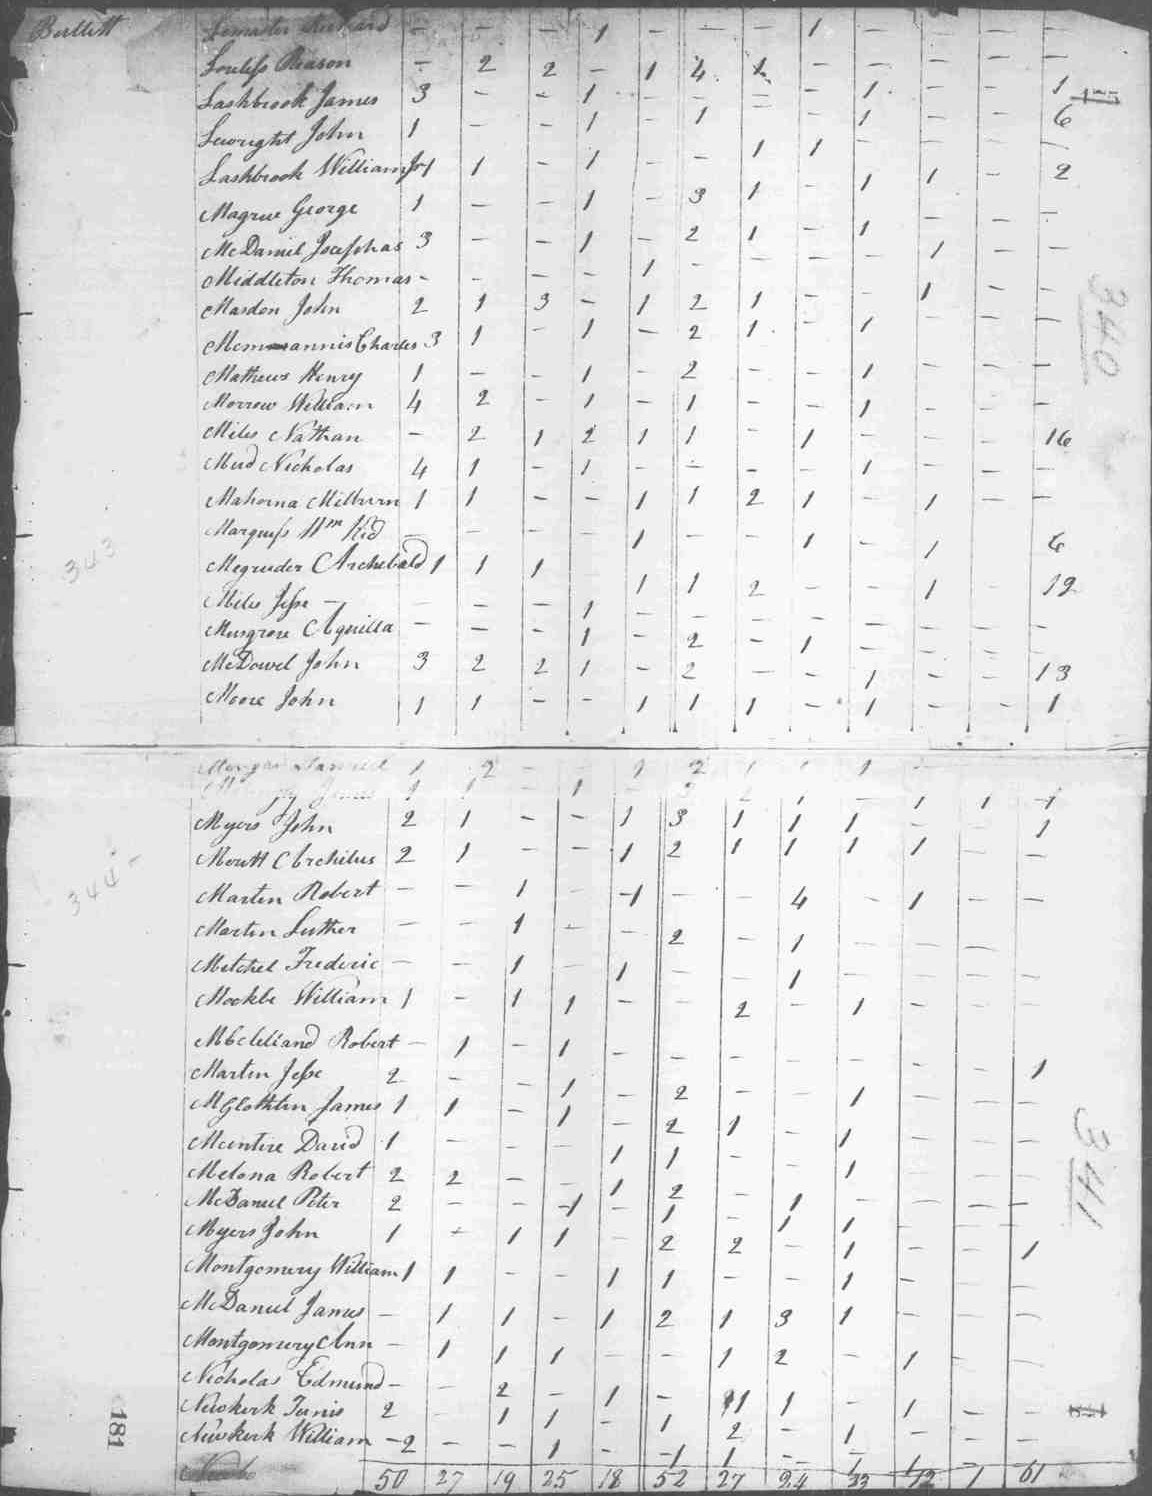 Bullitt Lemaster Richard – – – 1 – – – 1 – – – –
Lovless Reason – 2 2 – 1 4 1 – – – – –
Lashbrook James 3 – – 1 – – – – 1 – – 1
Sewright John 1 – – 1 – 1 – – 1 – – 6
Lashbrook William Jr 1 1 – 1 – – 1 1 – – – –
Magrue George 1 – – 1 – 3 1 – 1 1 – 2
McDaniel Josephas 3 – – 1 – 2 1 – 1 – – –
Middleton Thomas – – – – 1 – – – – 1 – –
Masden John 2 1 3 – 1 2 1 – – 1 – –
Mcmannis Charles 3 1 – 1 – 2 1 – 1 – – –
340
Mathews Henry 1 – – 1 – 2 – – 1 – – –
Morrow William 4 2 – 1 – 1 – – 1 – – –
Miles Nathan – 2 1 2 1 1 – 1 – – – 16
Mud Nicholas 4 1 – 1 – – – – 1 – – –
Mahorna Milburn 1 1 – – 1 1 2 1 – 1 – –
Marquess Wm Kid – – – – 1 – – 1 – 1 – 6
343
Megruder Archebald 1 1 1 – 1 1 2 – – 1 – 12
Miles Jesse – – – – 1 – – – – – – – –
Musgrove Aquilla – – – 1 – 2 – 1 – – – –
McDowel John 3 2 2 1 – 2 – – 1 – – 13
Moore John 1 1 – – 1 1 1 – 1 – – 1
1 2 – – 1 2 1 1 1 –
James 1 1 – 1 – 3 2 1 – 1 1 1
Myers John 2 1 – – 1 3 1 1 1 – – 1
Moutt Archilus 2 1 – – 1 2 1 1 1 1 – –
344
Martin Robert – – 1 – 1 – – 4 – 1 – –
Martin Luther – – 1 – – 2 – 1 – – –
Mitchel Frederic – – 1 – 1 – – 1 – – – –
Mockbe William 1 – 1 1 – – 2 – 1 – – –
McCleliand Robert – 1 – 1 – – – – – – – 1
Martin Jesse 2 – – 1 – 2 – – 1 – – –
MGlothlin James 1 1 – 1 – 2 1 – 1 – – –
341
Mcentire David 1 – – – 1 1 – – 1 – – –
Melona Robert 2 2 – – 1 2 – 1 – – – –
McDaniel Peter 2 – – 1 – 1 – 1 1 – – –
Myers John 1 – 1 1 – 2 2 – 1 – – 1
Montgomery William 1 1 – – 1 1 – – 1 – –
McDaniel James – 1 1 – 1 2 1 3 1 – – –
Montgomery Ann – 1 1 1 – – 1 2 – 1 – –
Nicholas Edmund – – 2 – 1 – 1 1 – – –
Newkerk Tunis 2 – 1 1 – 1 2 – 1 – – –
181
Newkerk William – 2 – – 1 – 1 1 – – 1 – –
50 27 19 25 18 52 27 24 23 12 1 61